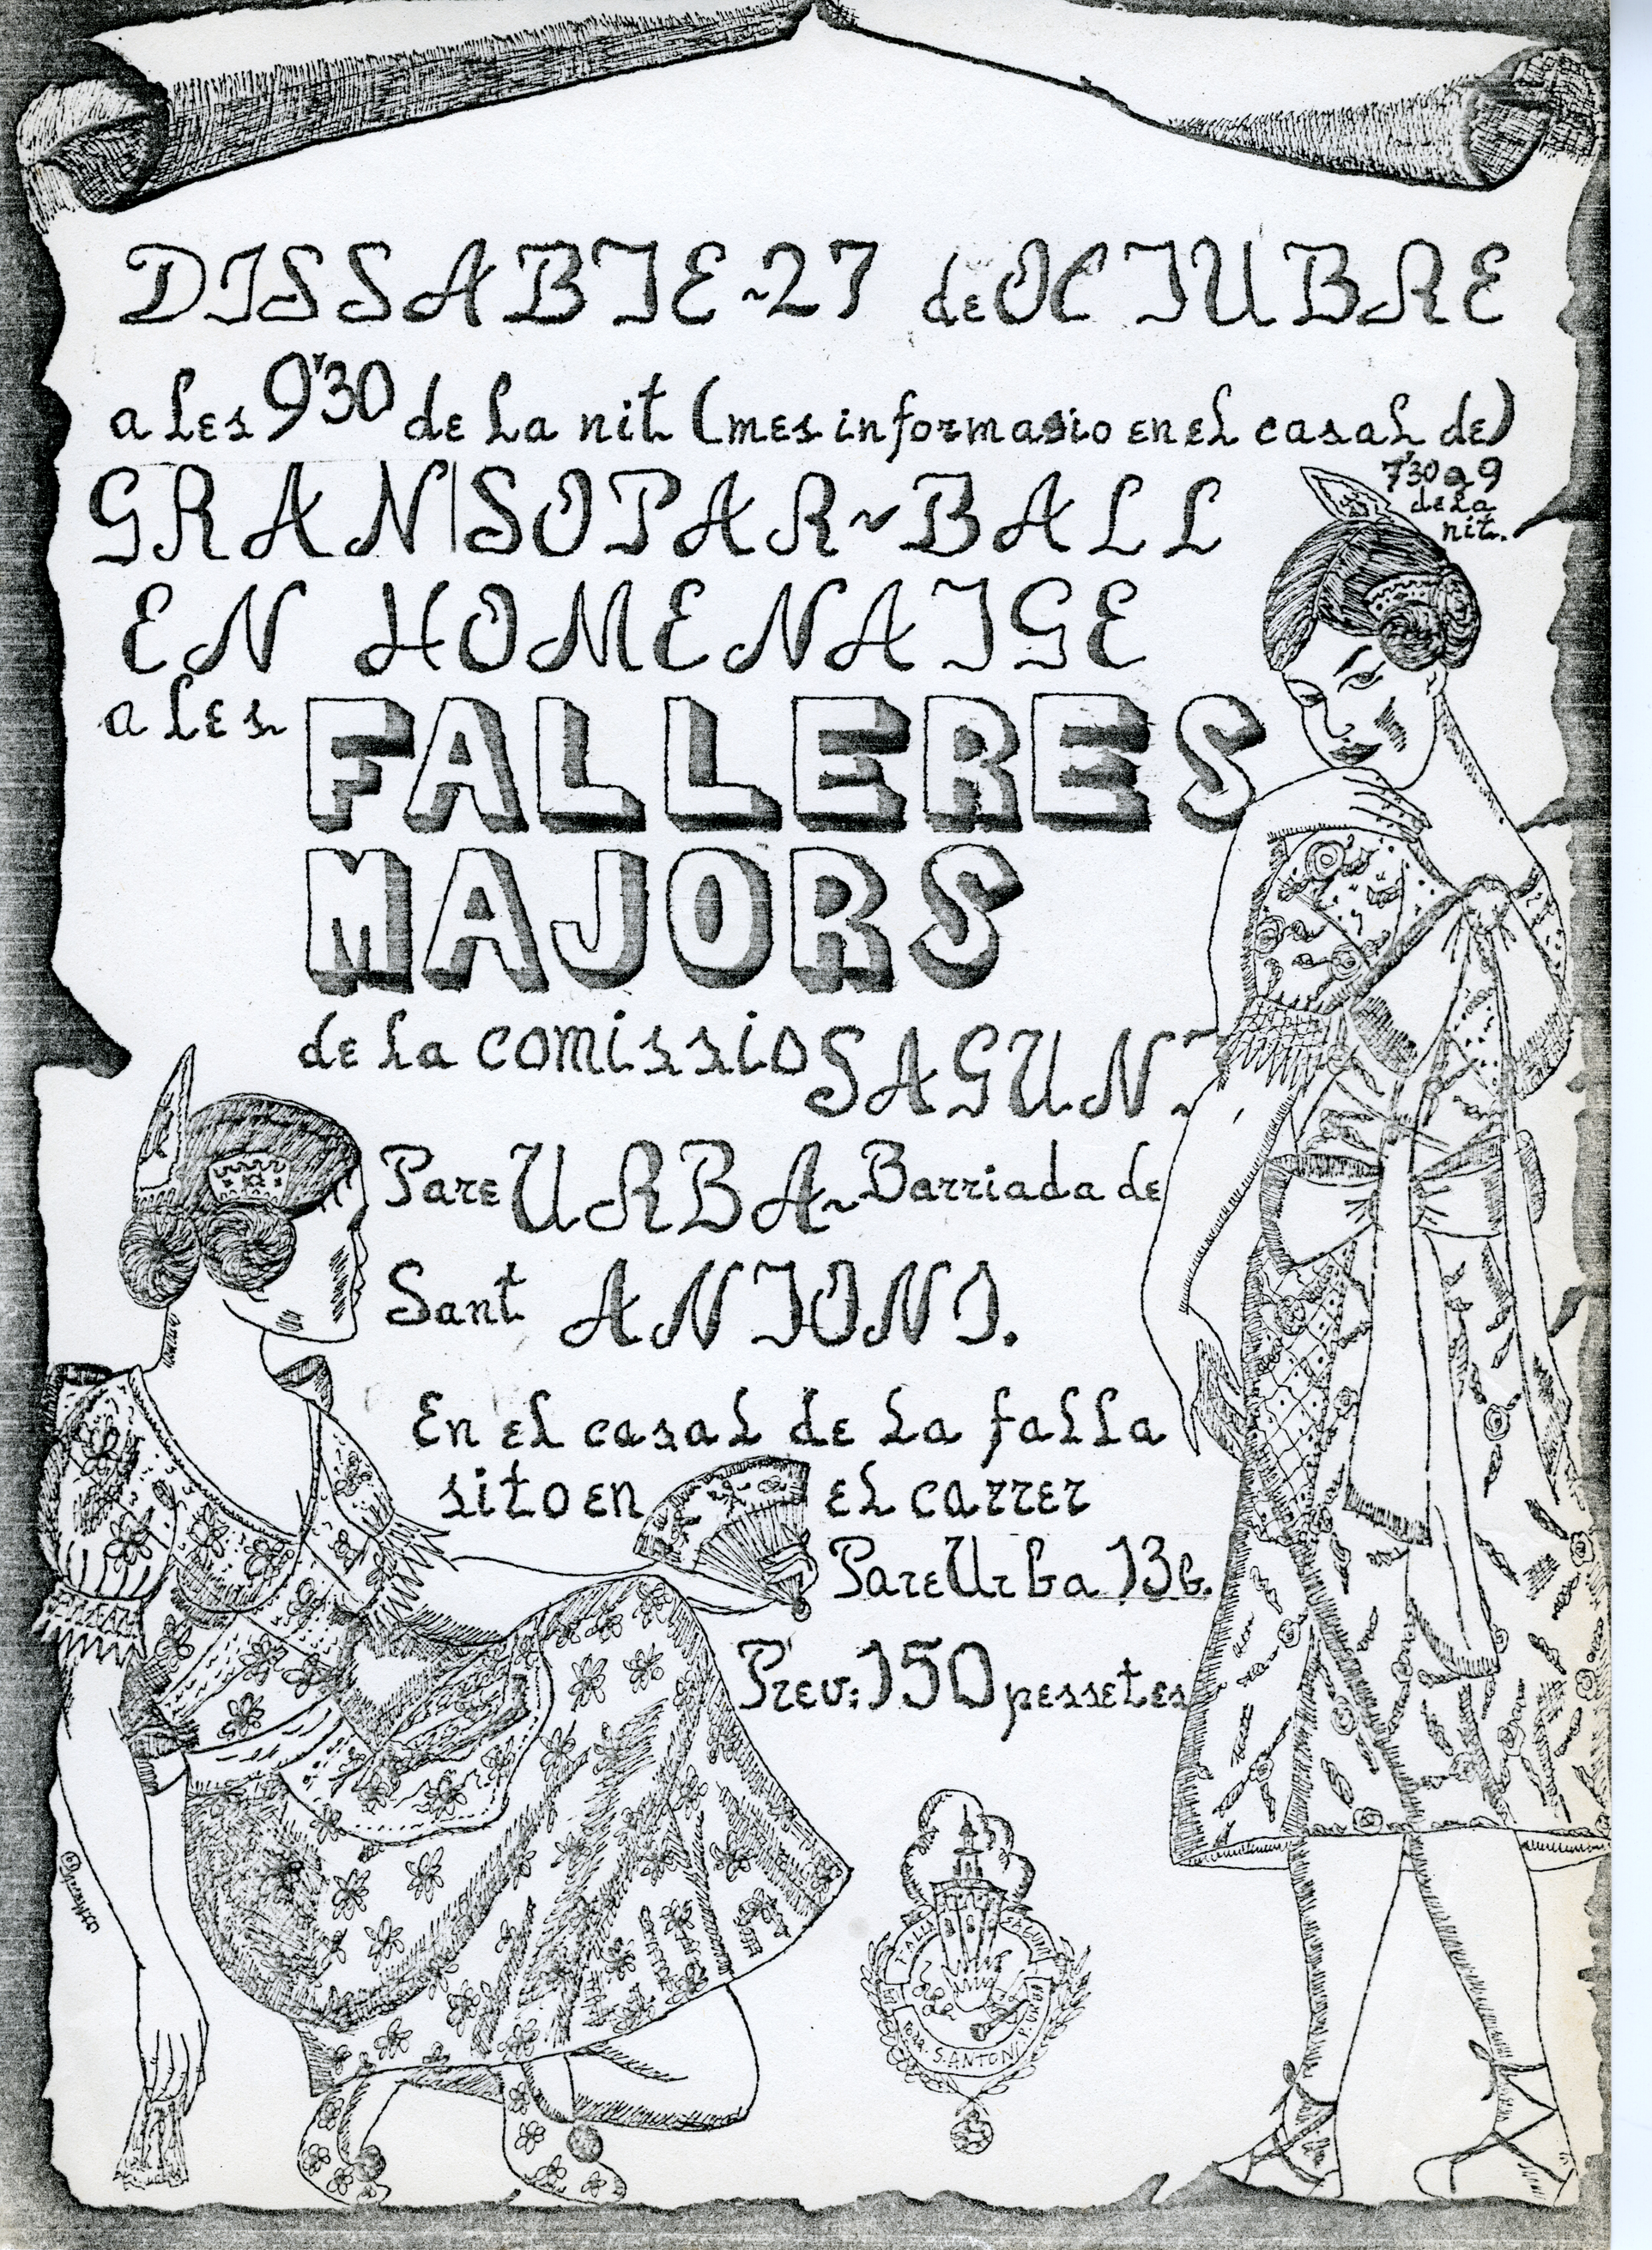 DISSABTE~27 de OCTUBRE
a les 9'30 de la nit (mes informasio en el casal de)
7'30 a 9
de la
nit.
GRAN SOPAR~BALL
EN HOMENATGE
a les FALLERES
MAJORS
de la comissio SAGUNT
Pare URBA~Barriada de
Sant ANTONI.
En el casal de la falla
sito en el carrer
Pare Urba 13b.
Preu: 150 pessetes
S. ANTONI P. URBA